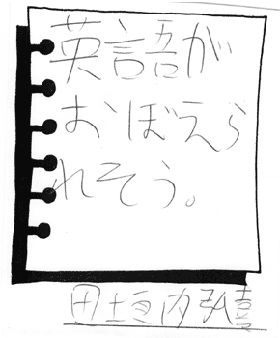 英語が
おぼえら
れそう。
田垣内弘喜